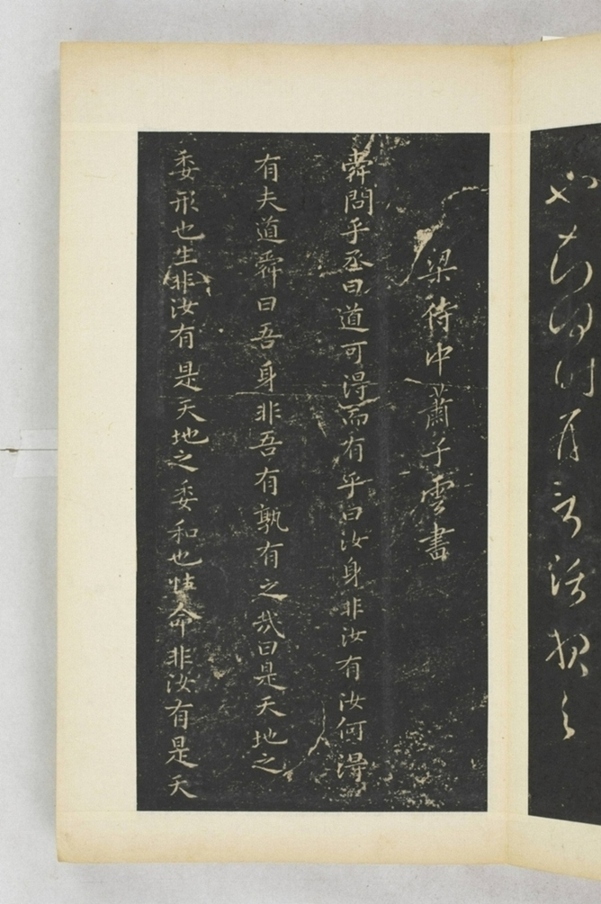 梁侍中蕭子雲書
舜問乎丞曰道可得而有乎曰汝身非汝有汝何得
有夫道舜曰吾身非吾有孰有之哉曰是天地之
委形也生非汝有是天地之委和也性命非汝有是天